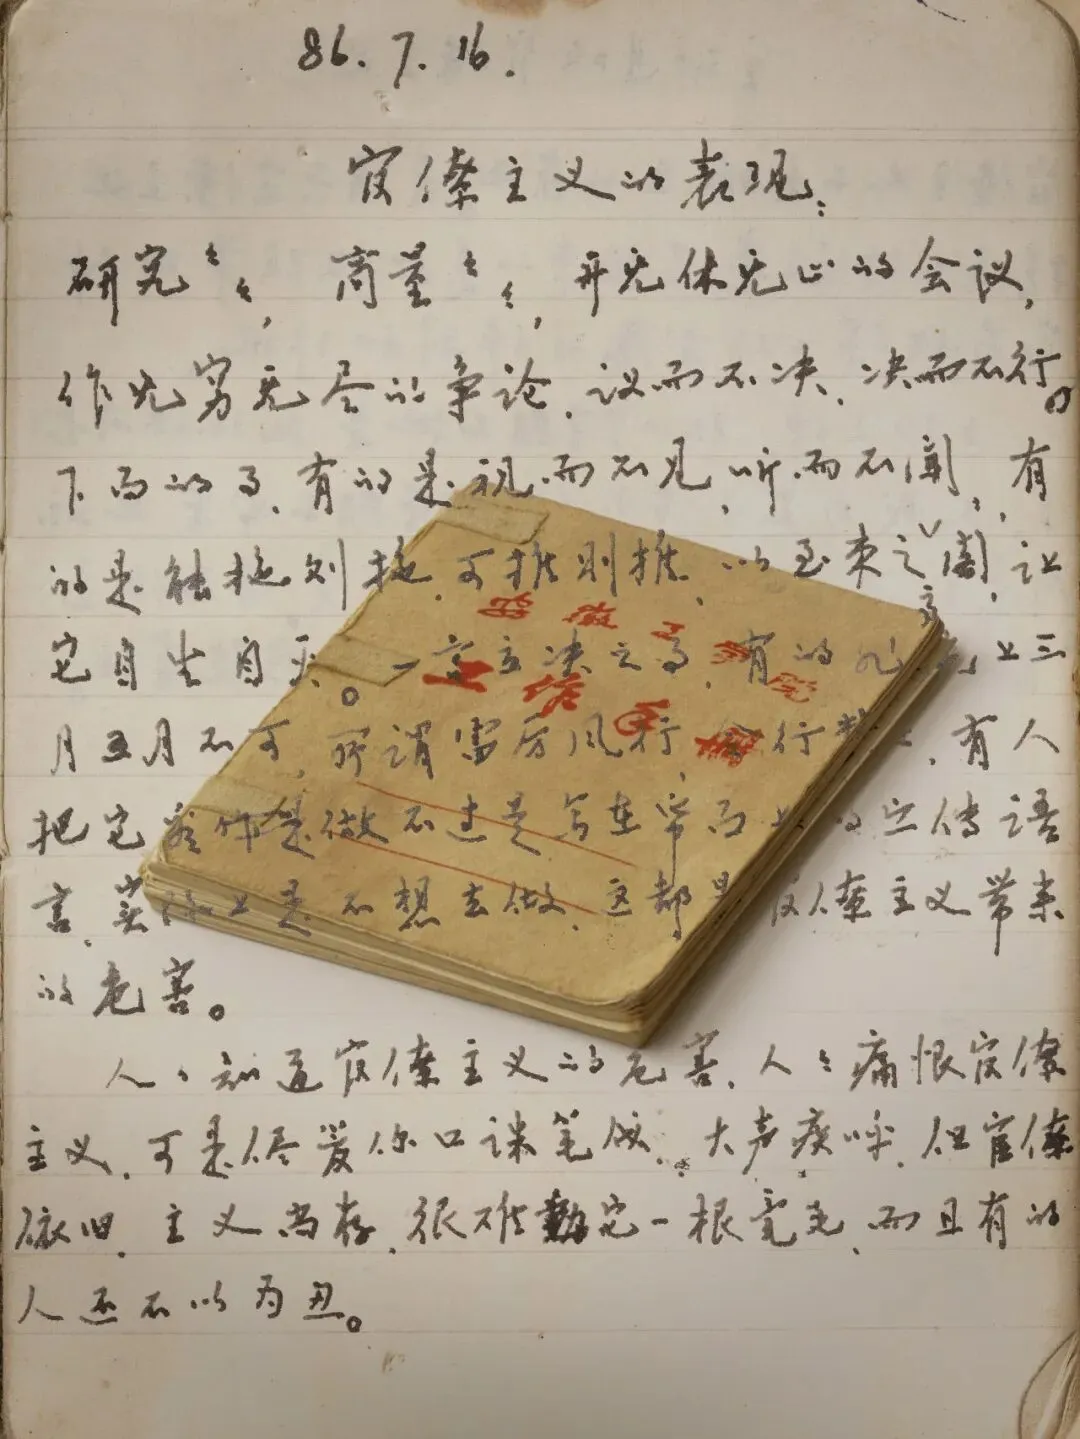 86.7.16.
官僚主义的表现:
研究々々,商量々々,开无休无止的会议,
作无穷无尽的争论,议而不决,决而不行。
下面的事,有的是视而不见,听而不闻,有
的是能拖则拖,可推则推,以至束之高阁,让
它自生自灭。一言立决之事,有的 上三
月五月不可,所谓雷厉风行,令行禁止,有人
把它看作是做不过是写在字面上的宣传语
言,实际上是不想去做,这都是官僚主义带来
的危害。
人々知道官僚主义的危害,人々痛恨官僚
主义,可是尽管你口诛笔伐,大声疾呼,但官僚
依旧,主义尚存,很难动它一根毫毛,而且有的
人还不以为丑。